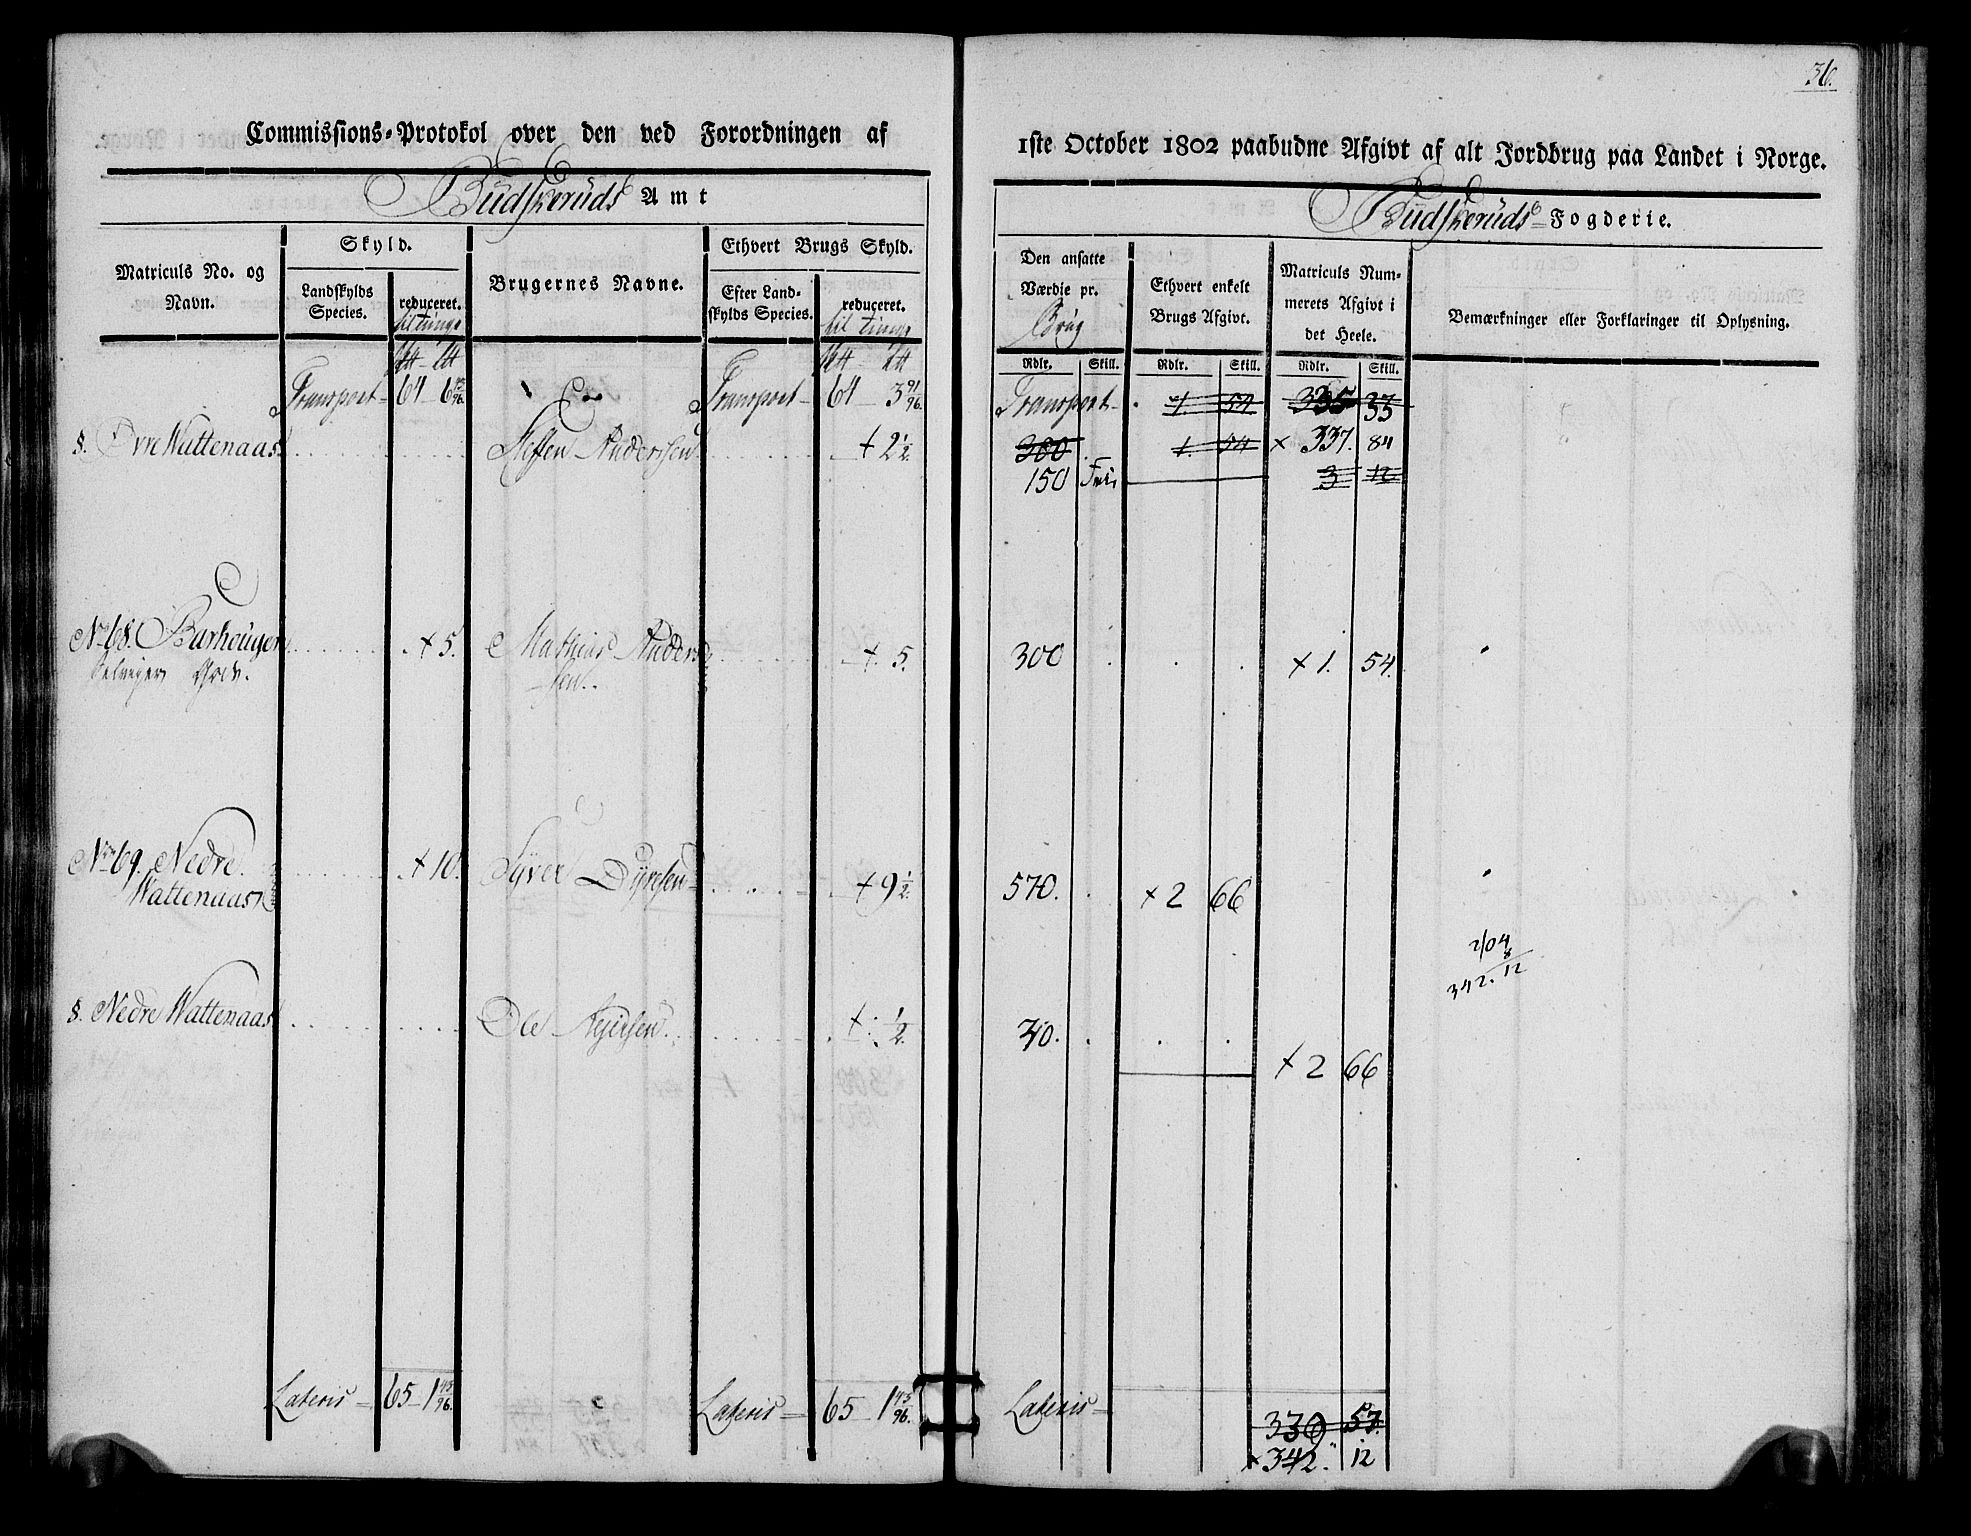 36.
Commissions-Protokol over den ved Forordningen af
1ste October 1802 paabudne Afgivt af alt Jordbrug paa Landet i Norge.
Budskeruds Amt
Budskeruds Fogderie.
Matriculs No. og Navn.
Skyld.
Landskylds Species.
reduceret.
til tunge
Brugernes Navne.
Ethvert Brugs Skyld.
Efter Landskylds Species.
reduceret.
til tunge
Den ansatte Værdie pr.
Brug
Ethvert enkelt Brugs Afgivt.
Matriculs Nummerets Afgivt i det Heele.
Bemærkninger eller Forklaringer til Oplysning.
Rdlr. Skill. Rdlr. Skill. Rdlr. Skill.
Transport 64 6 45/96 Transport 64 3 91/96 Transport 1 54 335
§. Øvre Wattenaas Steffen Andersen + 2 1/2 300 1. 54 × 337. 84
150 Fri 3 12
No 68. Barhougen + 5. Mathias Andersen +. 5. 300 × 1. 54
No 69. Nedre Wattenaas + 10. Syver + 9 1/2 570. × 2 66
2/04
8
342. 12
§. Nedre Wattenaas Ole + 1/2 30.
× 2 66
Lateris 65 1 45/96 Lateris 65 1 45/96 Lateris 339 57
× 342. 12